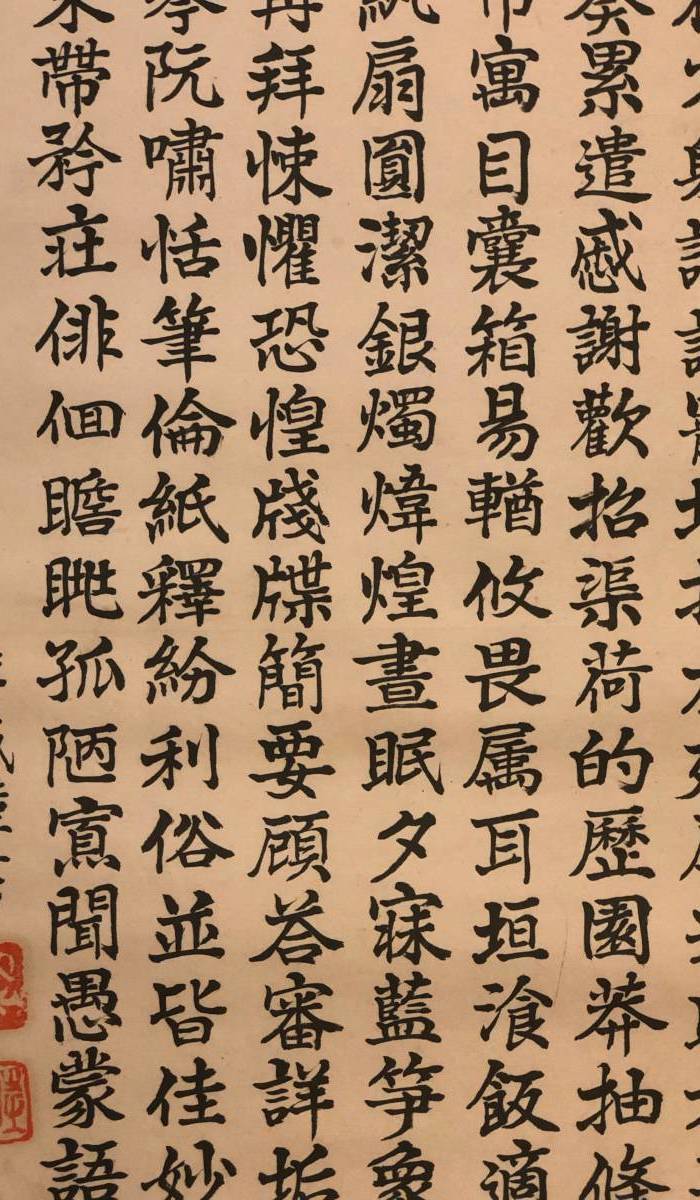 奏累遣慼謝歡招渠荷的歷園莽抽條
市寓目囊箱易輶攸畏属耳垣湌飯適
紈扇圓潔銀燭煒煌晝眠夕寐藍笋象
再拜悚懼恐惶牋牒簡要顧荅審詳垢
琴阮嘯恬筆倫紙釋紛利俗並皆佳妙
束帶矜莊俳佪瞻眺孤陋寡聞愚蒙語